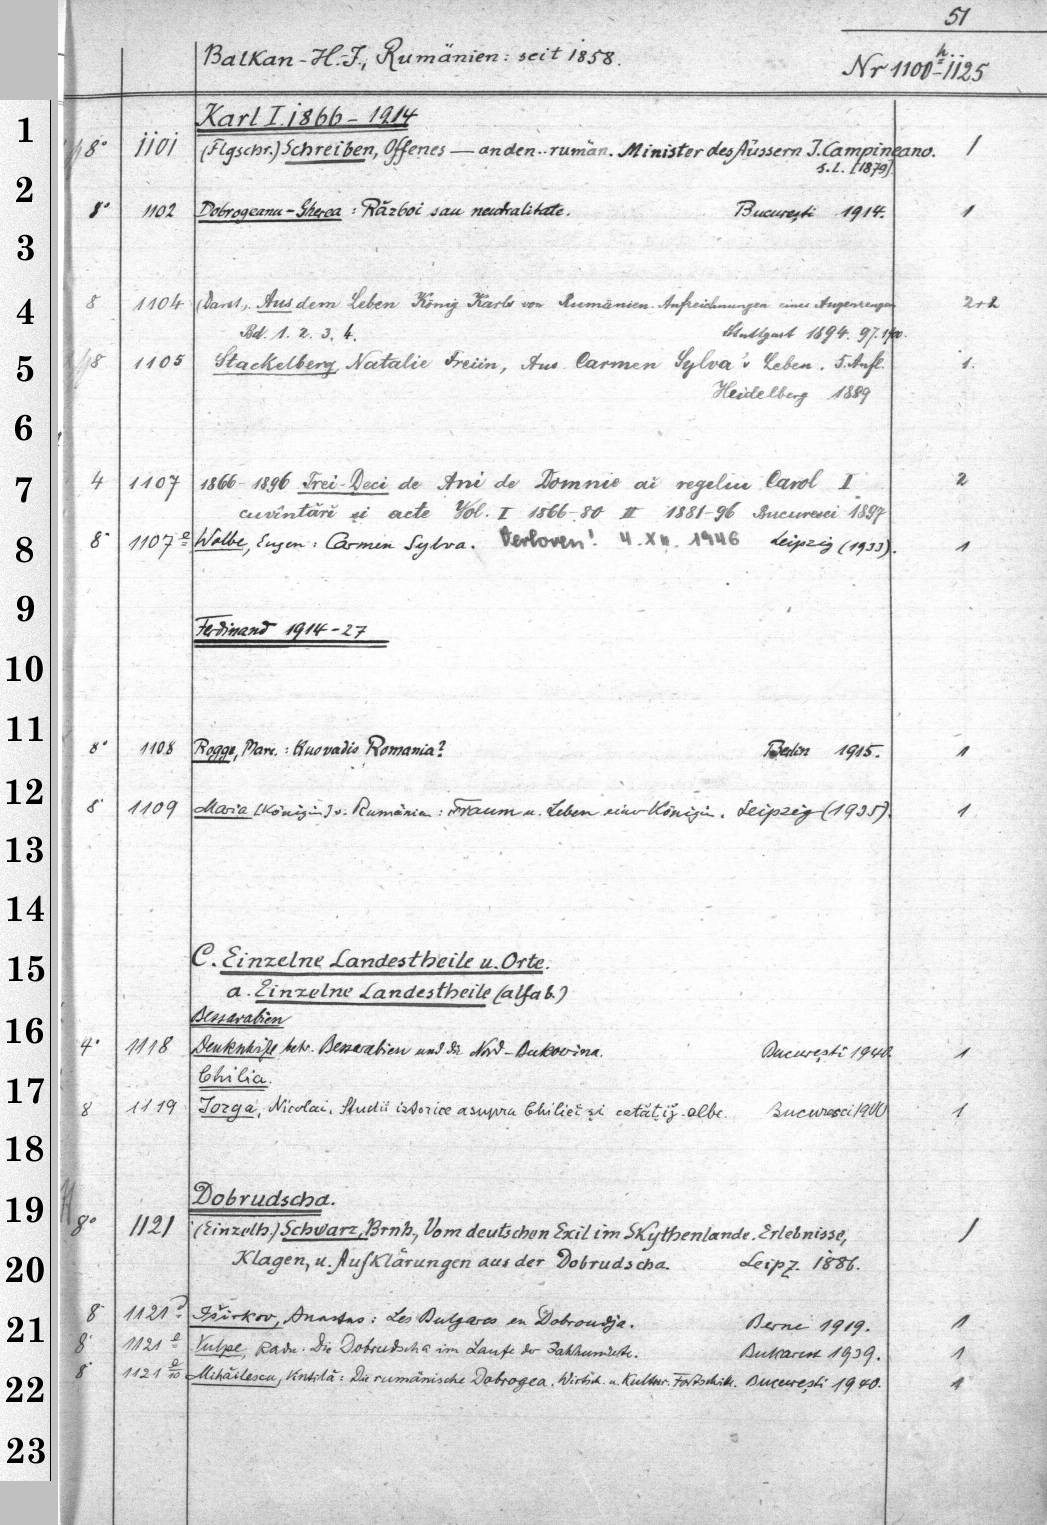 51
Balkan-H.-J., Rumänien: seit 1858.
Nr 1100h-1125
Karl I. 1866-1914
8° 1101 (Flgschr.) Schreiben, Offenes — an den rumän. Minister des Äussern J. Campineano. 1
s.l. [1879].
8° 1102 Dobrogeanu-Gherea: Război sau neutralitate. București 1914. 1
8 1104 Aus dem Leben König Karls von Rumänien. Aufzeichnungen eines Augenzeugen 2+2
Bd. 1. 2. 3. 4. Stuttgart 1894. 97. 1900.
8 1105 Stackelberg, Natalie Freiin, Aus Carmen Sylva's Leben. 5. Aufl. 1.
Heidelberg 1889
4 1107 1866-1896 Trei-Deci de Ani de Domnie ai regelui Carol I 2
cuvîntări și acte Vol. I 1866-80 II 1881-96 Bucuresci 1897
8° 1107a Wolbe, Eugen: Carmen Sylva. Verloren! 4. XII. 1946 Leipzig (1933). 1
Ferdinand 1914-27
8° 1108 Rogge, Marc.: Kuovadis Romania? Berlin 1915. 1
8° 1109 Maria [Königin] v. Rumänien: Traum u. Leben einer Königin. Leipzig (1935). 1
C. Einzelne Landestheile u. Orte.
a. Einzelne Landestheile (alfab.)
Bessarabien
4° 1118 Denkschrift betr. Bessarabien und die Nord-Bukovina. București 1940. 1
Chilia.
8 1119 Jorga, Nicolai, Studii istorice asupra Chiliei și cetății albe. Bucuresci 1900 1
Dobrudscha.
8° 1121 (Einzelh.) Schwarz, Brnh., Vom deutschen Exil im Skythenlande. Erlebnisse, 1
Klagen, u. Aufklärungen aus der Dobrudscha. Leipz. 1886.
8° 1121 Iširkov, Anastas: Les Bulgares en Dobroudja. Berne 1919. 1
8° 1121 Vulpe, Radu. Die Dobrudscha im Laufe der Jahrhunderte. Bukarest 1939. 1
8° 1121 Mihăilescu, Vintilă: Die rumänische Dobrogea. Wirtsch. u. Kultur. Fortschritt. București 1940. 1
1
2
3
4
5
6
7
8
9
10
11
12
13
14
15
16
17
18
19
20
21
22
23